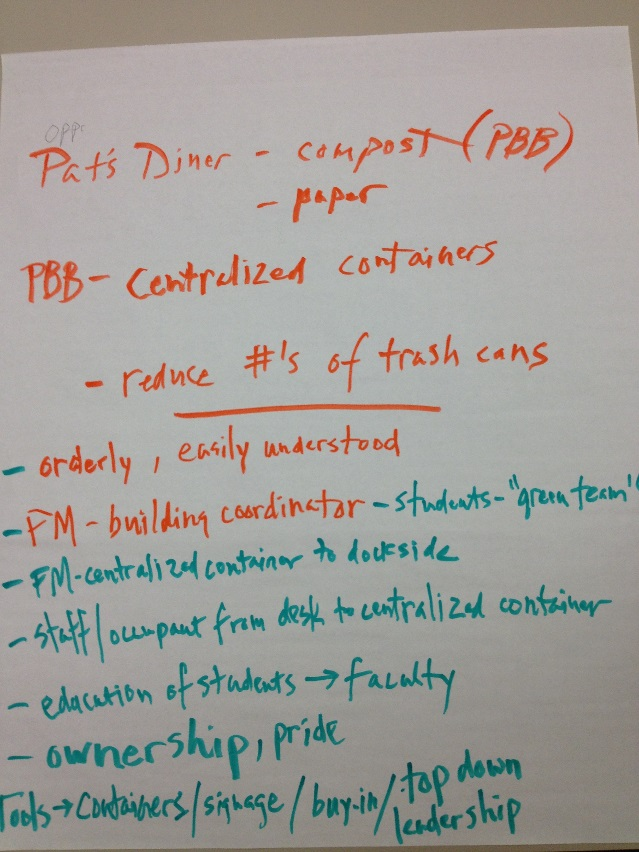 Opp:
Pat's Diner - compost (PBB)
- paper
PBB - centralized containers
- reduce #'s of trash cans
- orderly, easily understood
- FM - building coordinator - students - "green team"
- FM - centralized container to dockside
- staff/occupant from desk to centralized container
- education of students → faculty
- ownership, pride
Tools → containers/signage/buy-in/top down
leadership